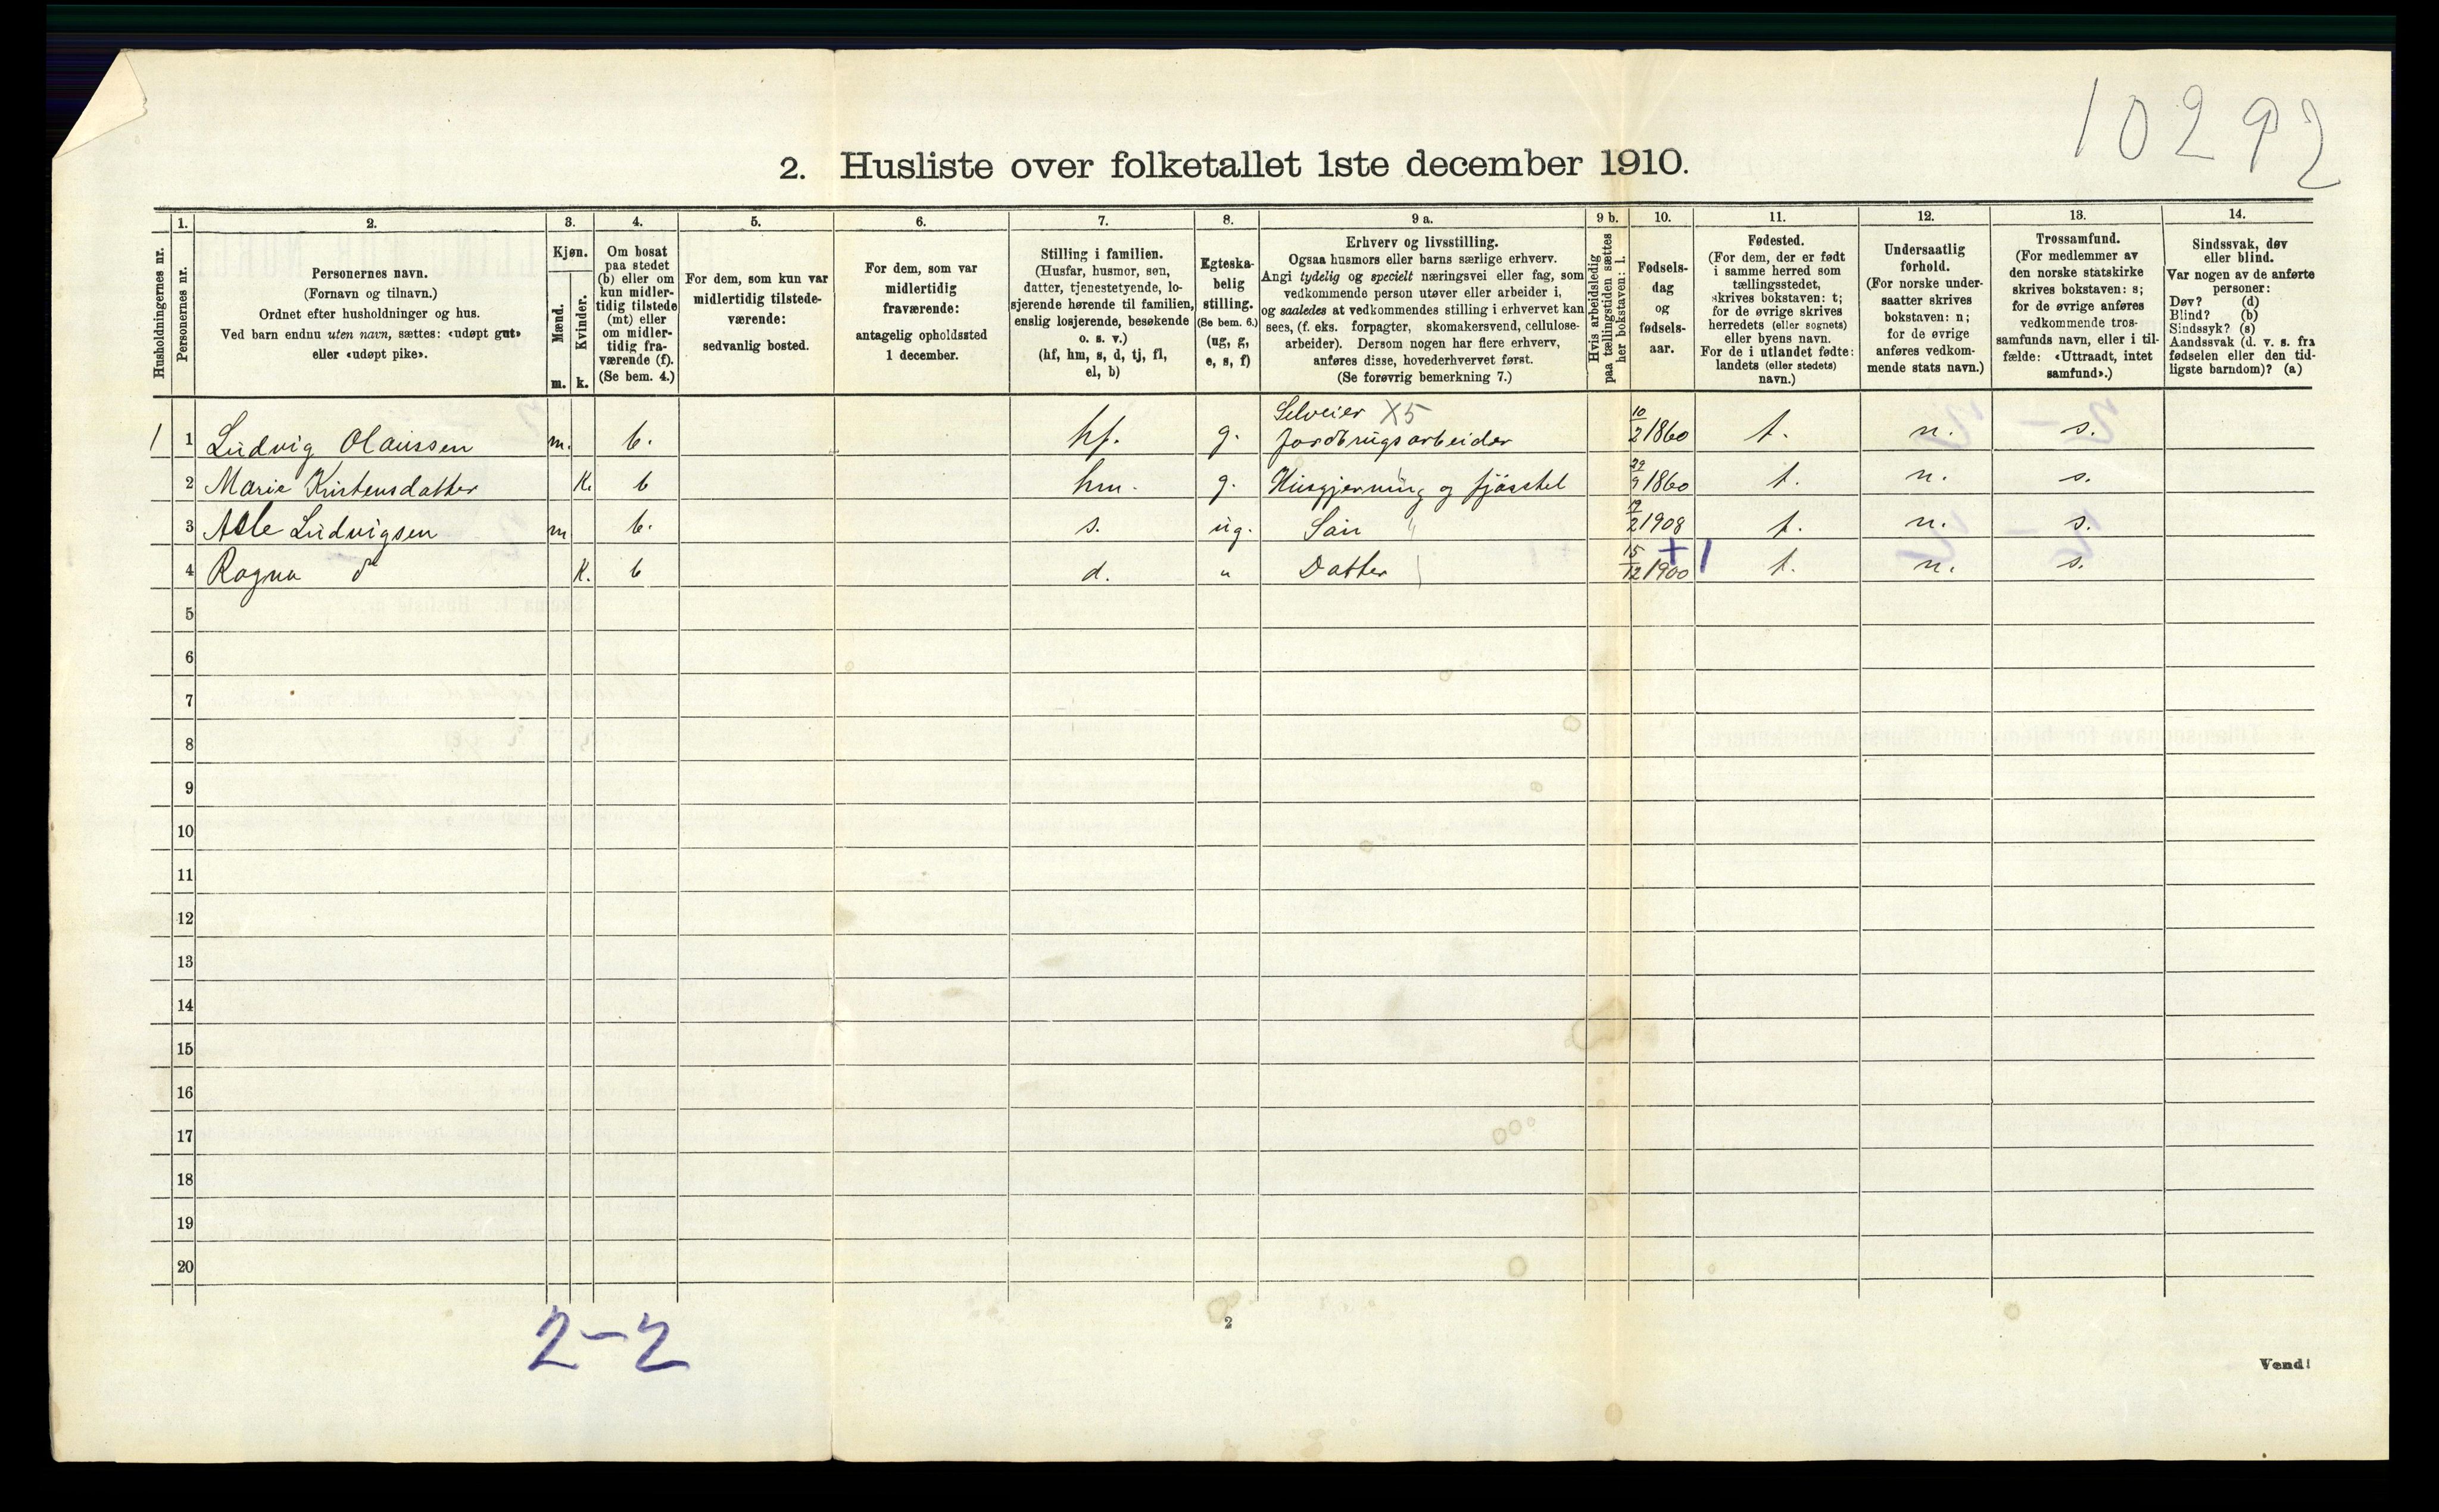 10292
2. Husliste over folketallet 1ste december 1910.
Husholdningernes nr.
1.
Personernes nr.
2.
Personernes navn.
(Fornavn og tilnavn.)
Ordnet efter husholdninger og hus.
Ved barn endnu uten navn, sættes: «udøpt gut»
eller «udøpt pike».
3.
Kjøn.
Mænd.
Kvinder.
m. k.
4.
Om bosat
paa stedet
(b) eller om
kun midler-
tidig tilstede
(mt) eller
om midler-
tidig fra-
værende (f).
(Se bem. 4.)
5.
For dem, som kun var
midlertidig tilstede-
værende:
sedvanlig bosted.
6.
For dem, som var
midlertidig
fraværende:
antagelig opholdssted
1 december.
7.
Stilling i familien.
(Husfar, husmor, søn,
datter, tjenestetyende, lo-
sjerende hørende til familien,
enslig losjerende, besøkende
o. s. v.)
(hf, hm, s, d, tj, fl,
el, b)
8.
Egteska-
belig
stilling.
(Se bem. 6.)
(ug, g,
e, s, f)
9 a.
Erhverv og livsstilling.
Ogsaa husmors eller barns særlige erhverv.
Angi tydelig og specielt næringsvei eller fag, som
vedkommende person utøver eller arbeider i,
og saaledes at vedkommendes stilling i erhvervet kan
sees, (f. eks. forpagter, skomakersvend, cellulose-
arbeider). Dersom nogen har flere erhverv,
anføres disse, hovederhvervet først.
(Se forøvrig bemerkning 7.)
9 b.
Hvis arbeidsledig
paa tællingstiden sættes
her bokstaven: l.
10.
Fødsels-
dag
og
fødsels-
aar.
11.
Fødested.
(For dem, der er født
i samme herred som
tællingsstedet,
skrives bokstaven: t;
for de øvrige skrives
herredets (eller sognets)
eller byens navn.
For de i utlandet fødte:
landets (eller stedets)
navn.)
12.
Undersaatlig
forhold.
(For norske under-
saatter skrives
bokstaven: n;
for de øvrige
anføres vedkom-
mende stats navn.)
13.
Trossamfund.
(For medlemmer av
den norske statskirke
skrives bokstaven: s;
for de øvrige anføres
vedkommende tros-
samfunds navn, eller i til-
fælde: «Uttraadt, intet
samfund».)
14.
Sindssvak, døv
eller blind.
Var nogen av de anførte
personer:
Døv? (d)
Blind? (b)
Sindssyk? (s)
Aandssvak (d. v. s. fra
fødselen eller den tid-
ligste barndom)? (a)
Selveier X5
1 1 Ludvig Olaussen m. b. hf. g. Jordbrugsarbeider 10/2 1860 t. n. s.
2 Marie Kristensdatter K. b hm. g. Husgjerning og fjösstel 29/9 1860 t. n. s.
3 Asle Ludvigsen m b. s. ug. Sön " 2 1908 t. n. s.
4 Ragna d K. b d. " Datter 15/12 1900 +1 t. n. s.
5
6
7
8
9
10
11
12
13
14
15
16
17
18
19
20
2-2
2
Vend!